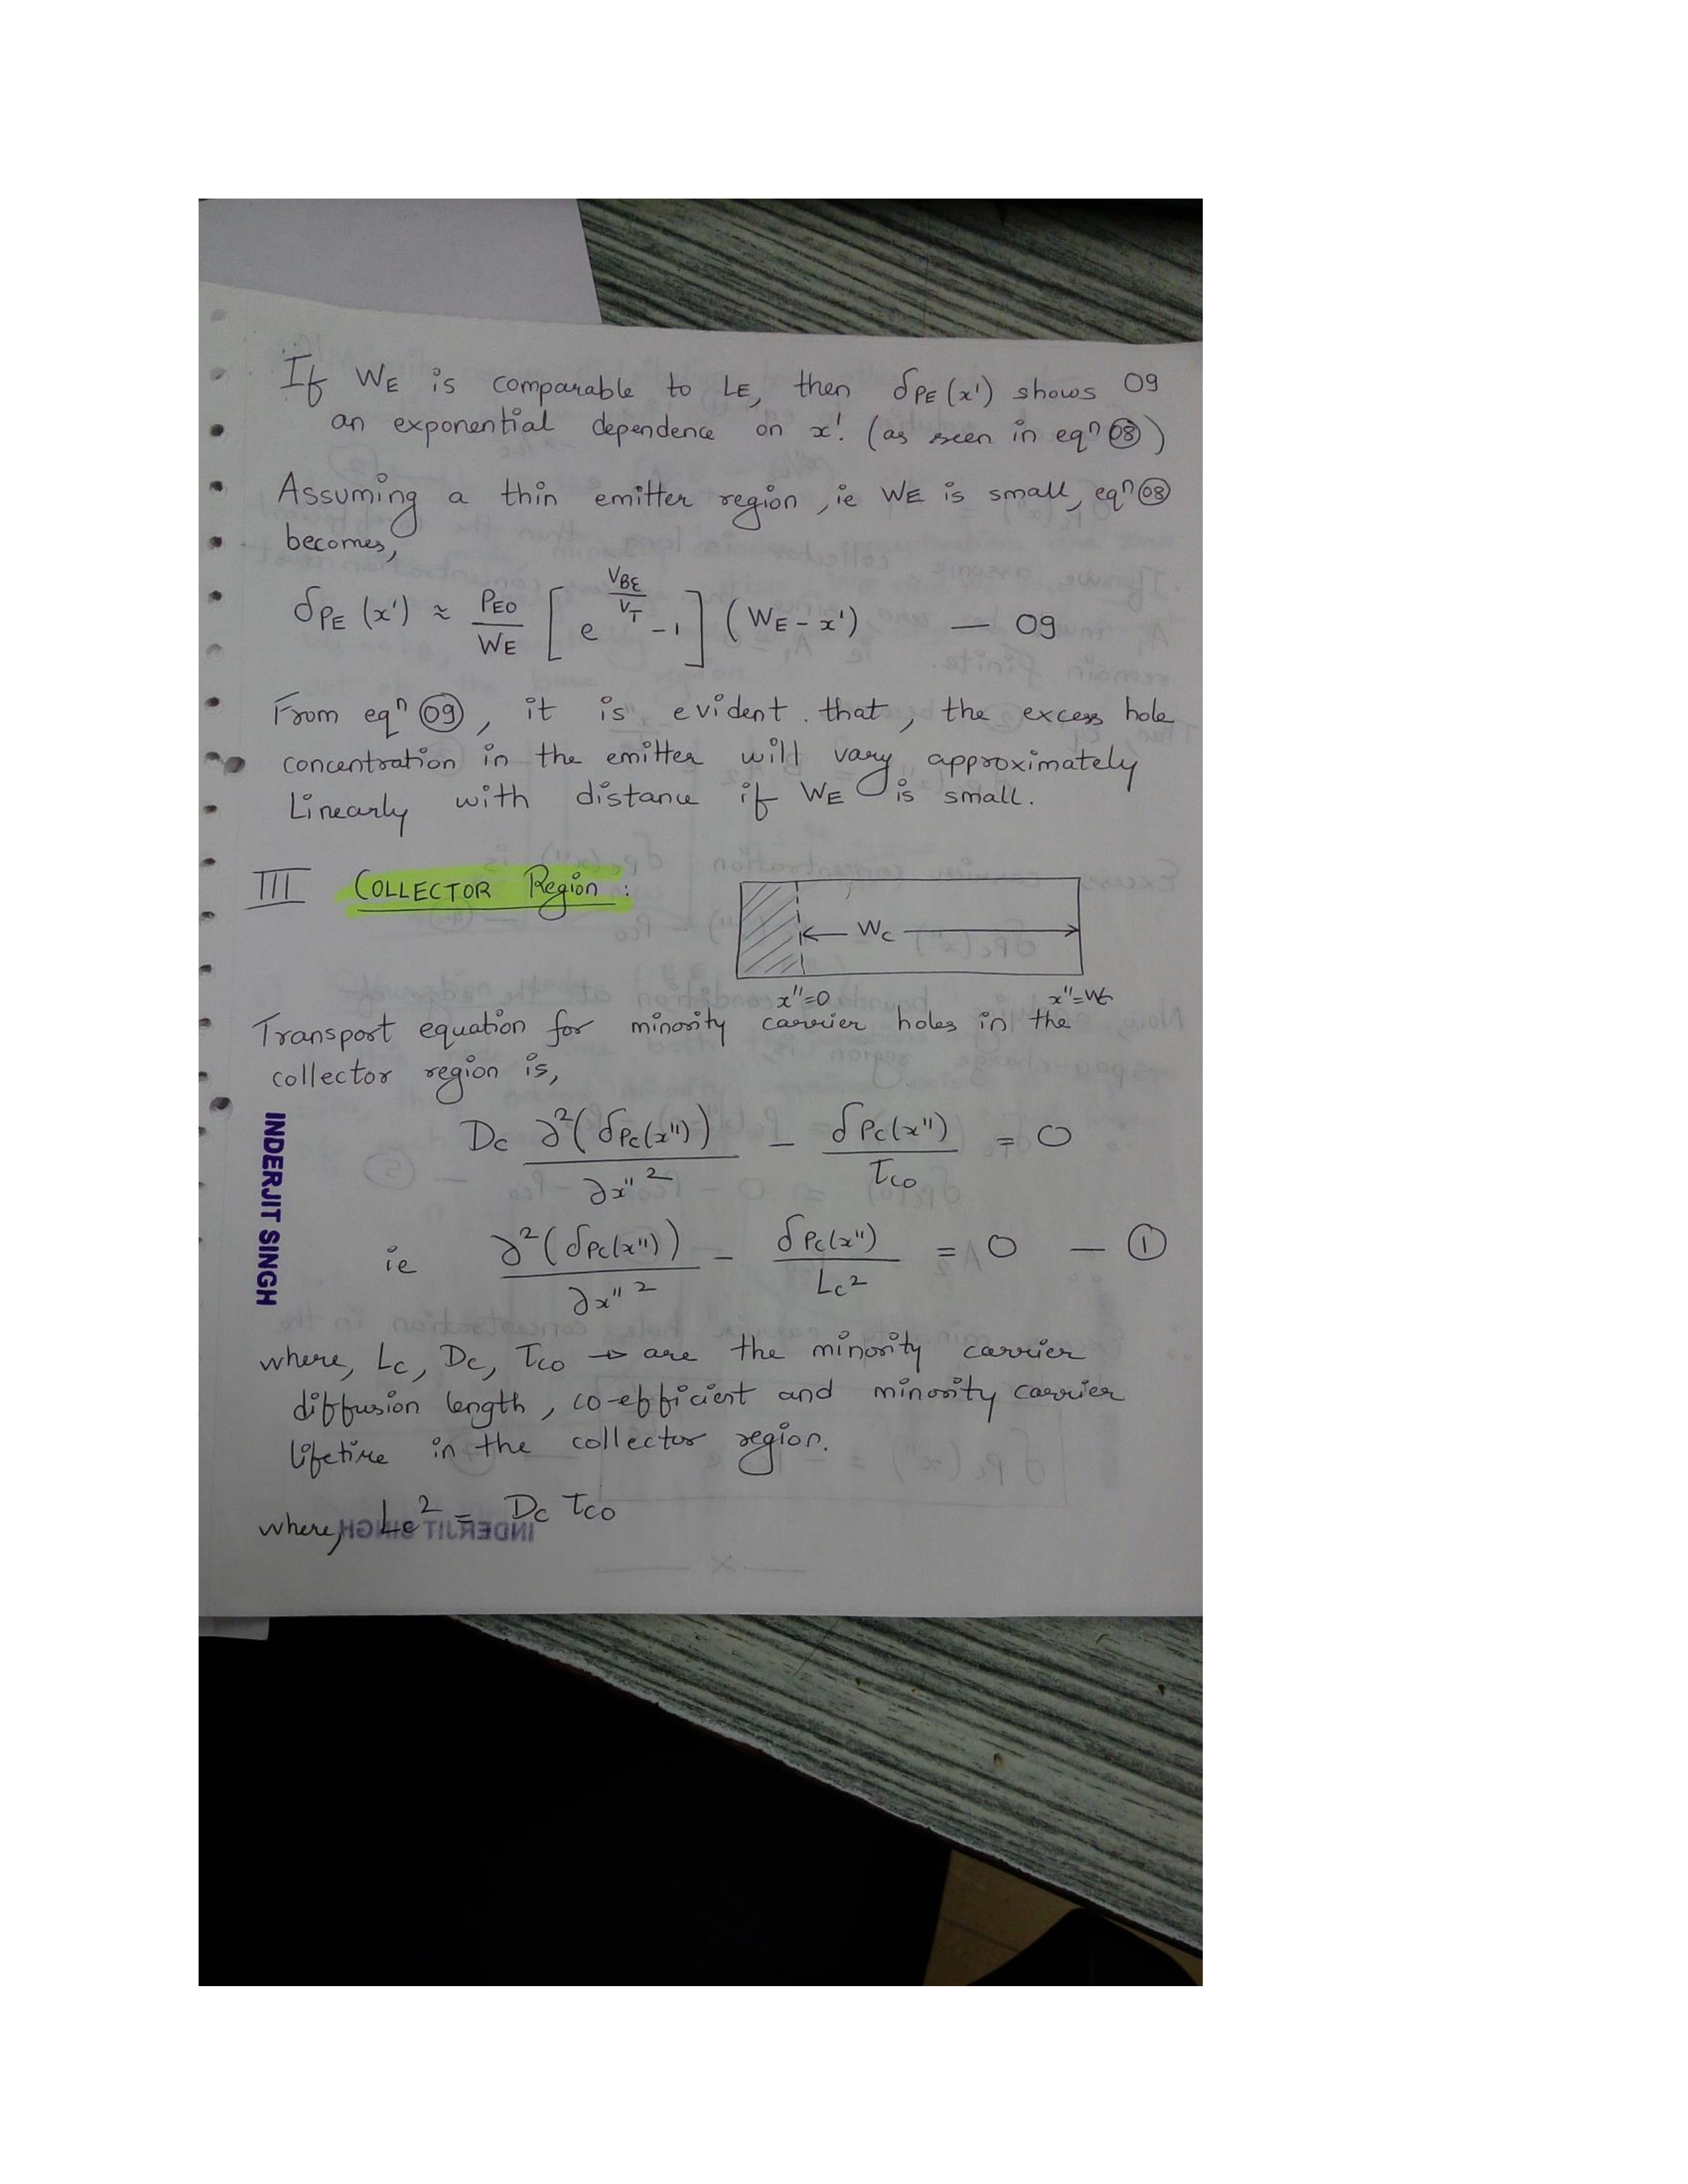 If WE is comparable to LE, then δPE(x') shows 09
an exponential dependence on x'. (as seen in eqⁿ 08)
Assuming a thin emitter region, ie WE is small, eqⁿ 08
becomes,
δPE (x') ≈ PEO/WE [e^(VBE/VT) -1] (WE - x') — 09
From eqⁿ 09, it is evident that, the excess hole
concentration in the emitter will vary approximately
Linearly with distance if WE is small.
III COLLECTOR Region:
Wc
x''=0 x''=Wc
Transport equation for minority carrier holes in the
collector region is,
Dc ∂²(δPc(x''))/∂x''² - δPc(x'')/τco = 0
ie ∂²(δPc(x''))/∂x''² - δPc(x'')/Lc² = 0 — ①
where, Lc, Dc, τco → are the minority carrier
diffusion length, co-efficient and minority carrier
lifetime in the collector region.
where, Lc² = Dc τco
INDERJIT SINGH
INDERJIT SINGH